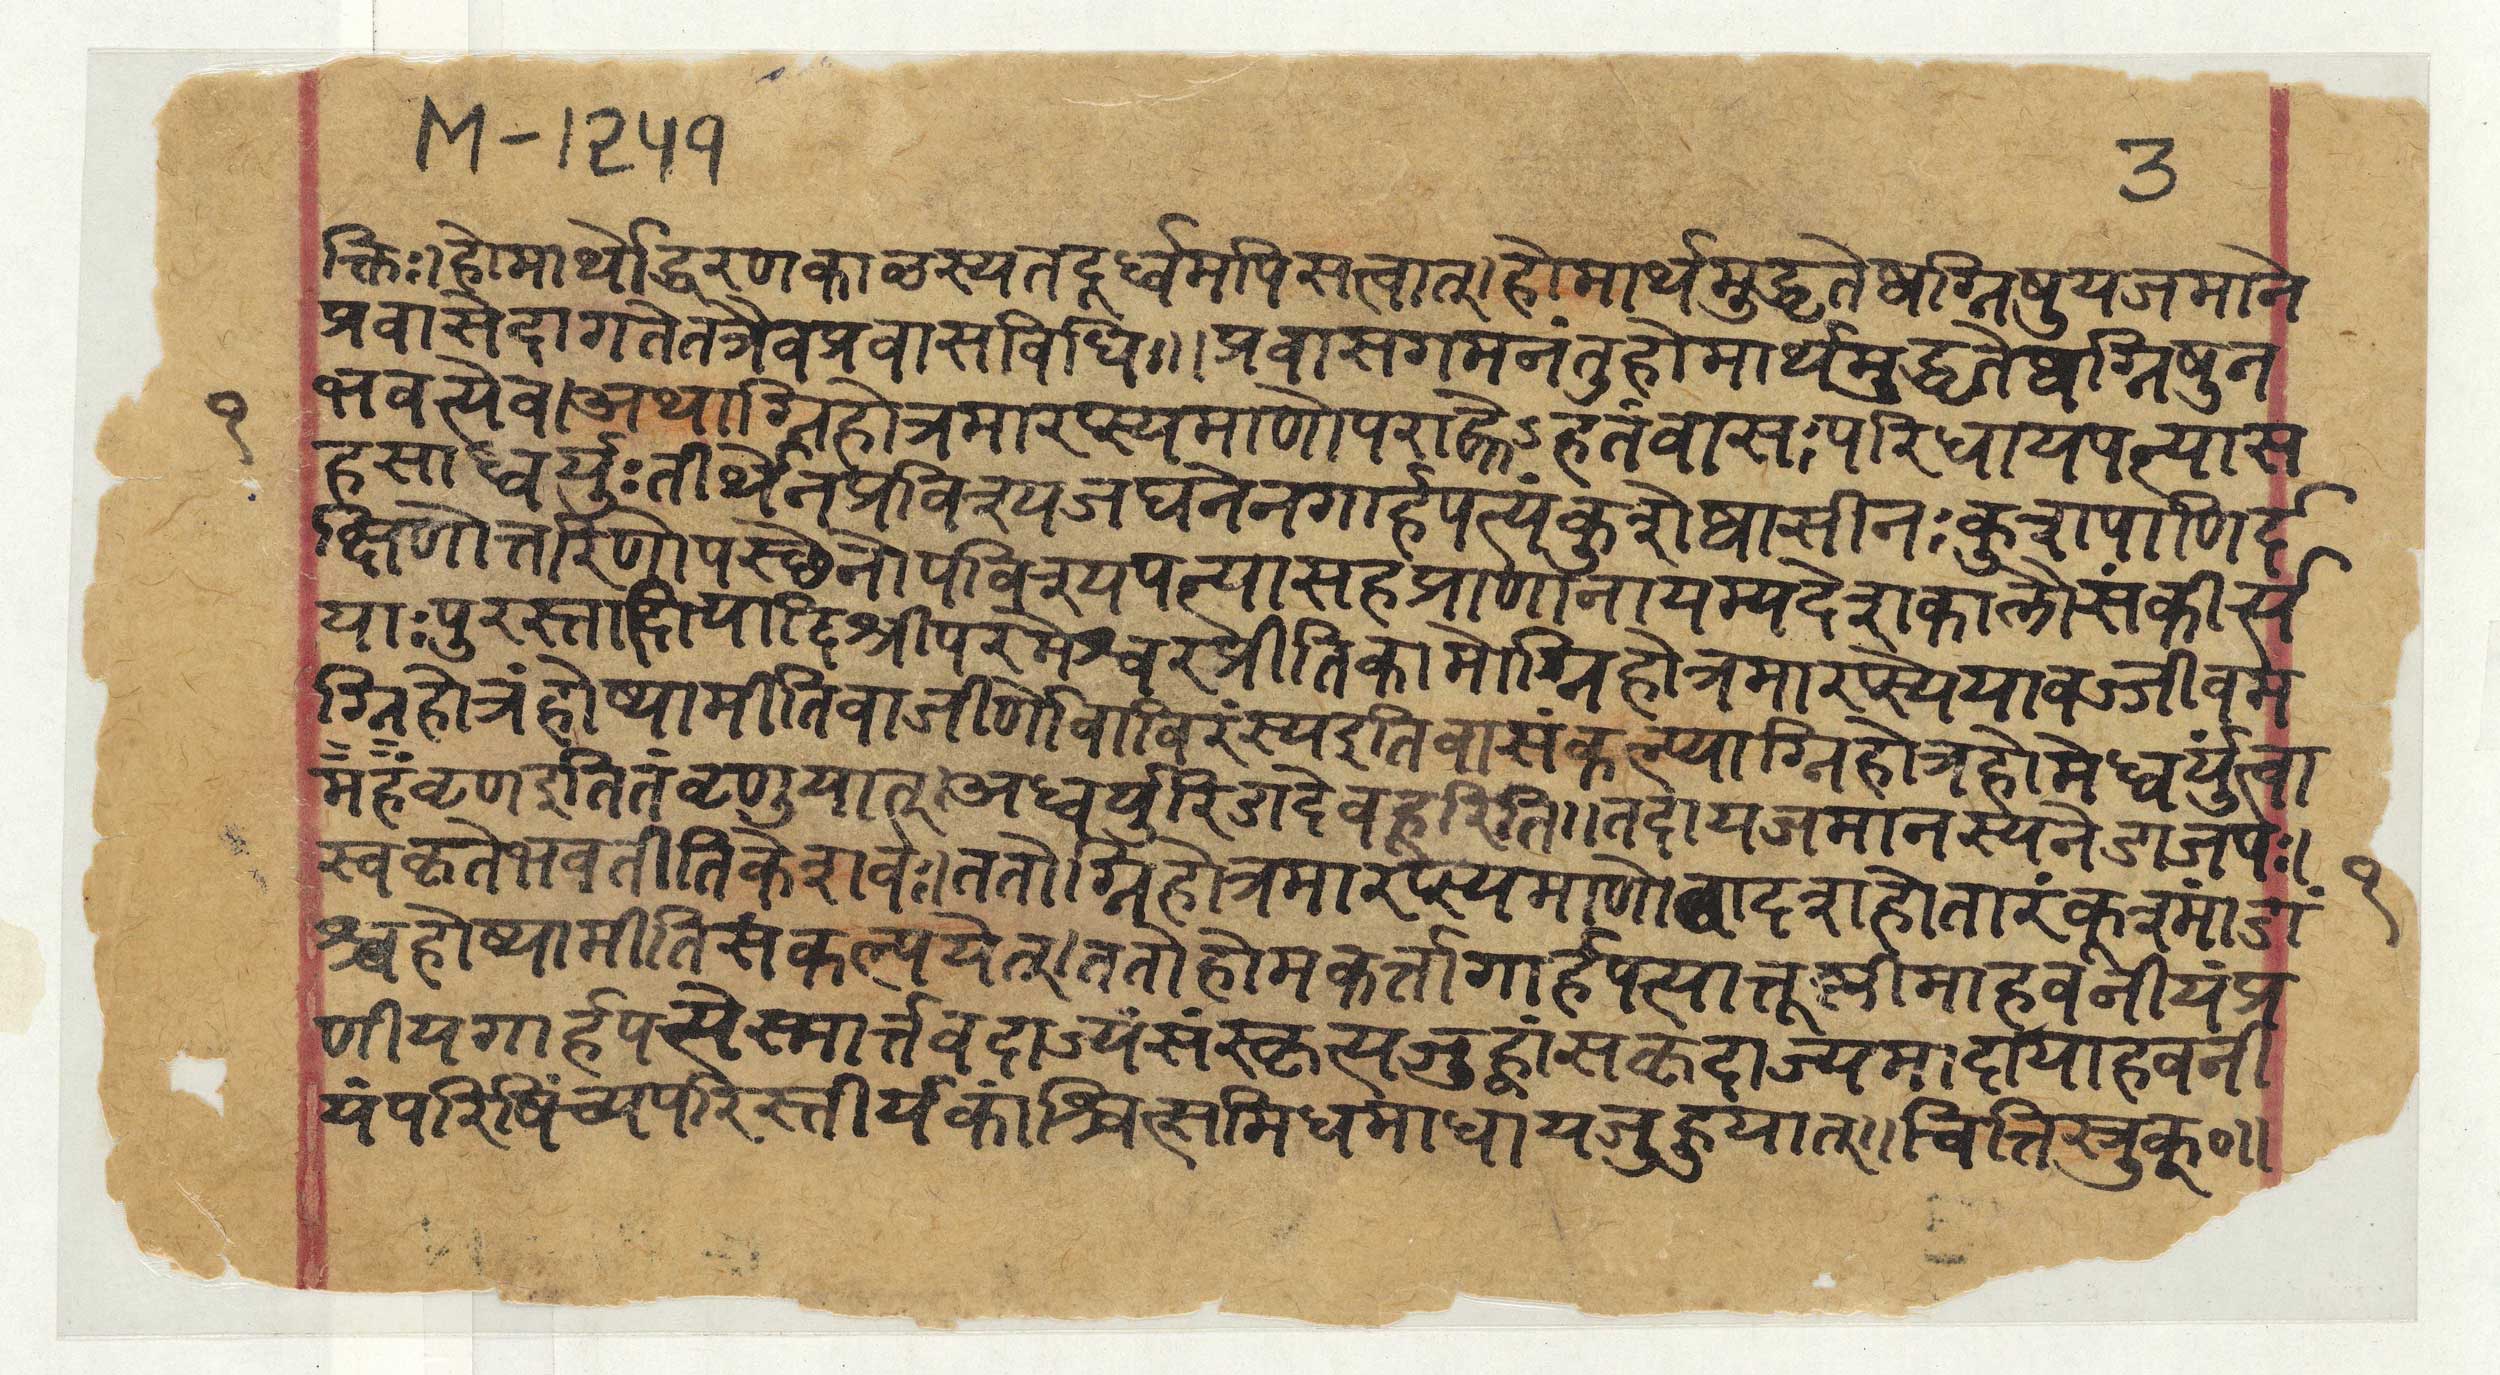 M-1२५१
3
क्तिः।होमार्थोद्धरणकाळस्यतदूर्ध्वमपिसत्वात्।होमार्थमुद्धृतेष्वग्निषुयजमाने
प्रवासेदागतेतत्रैवप्रवासविधिः॥प्रवासगमनंतुहोमार्थमुद्धृतेष्वग्निषुन
भवत्येव।अथाग्निहोत्रमारप्स्यमाणोपराह्णेऽहतंवासःपरिधायपत्न्यास
१
हसाध्वर्युःतीर्थेनप्रविश्यजघनेनगार्हपत्यंकुशेष्वासीनःकुशपाणिर्द
क्षिणोत्तरिणोपस्छेनोपविश्यपत्न्यासहप्राणानायम्यदेशकालौसंकीर्त्य
याःपुरस्तादित्यादिश्रीपरमेश्वरप्रीतिकामोग्निहोत्रमारप्स्येयावज्जीवम
ग्निहोत्रंहोष्यामीतिवाजीर्णोवाविरंस्यइतिवासंकल्प्याग्निहोत्रहोमेध्वर्युंत्वा
महंवृणइतितंवृणुयात्।अध्वर्युरिडादेवहूरिति॥तदायजमानस्यनेडाजपः।
स्वकृतेभवतीतिकेशवः।ततोग्निहोत्रमारप्स्यमाणोदशहोतारंकूश्मांडां
१
श्चहोष्यामीतिसंकल्पयेत्।ततोहोमकर्त्तागार्हपत्यात्तूष्णीमाहवनीयंप्र
णीयगार्हपत्येस्मार्त्तवदाज्यंसंस्कृत्यजुह्वांसकृदाज्यमादायाहवनी
यंपरिषिंच्यपरिस्तीर्यकांश्चित्समिधमाधायजुहुयात्॥चित्तिस्त्रुक्०॥